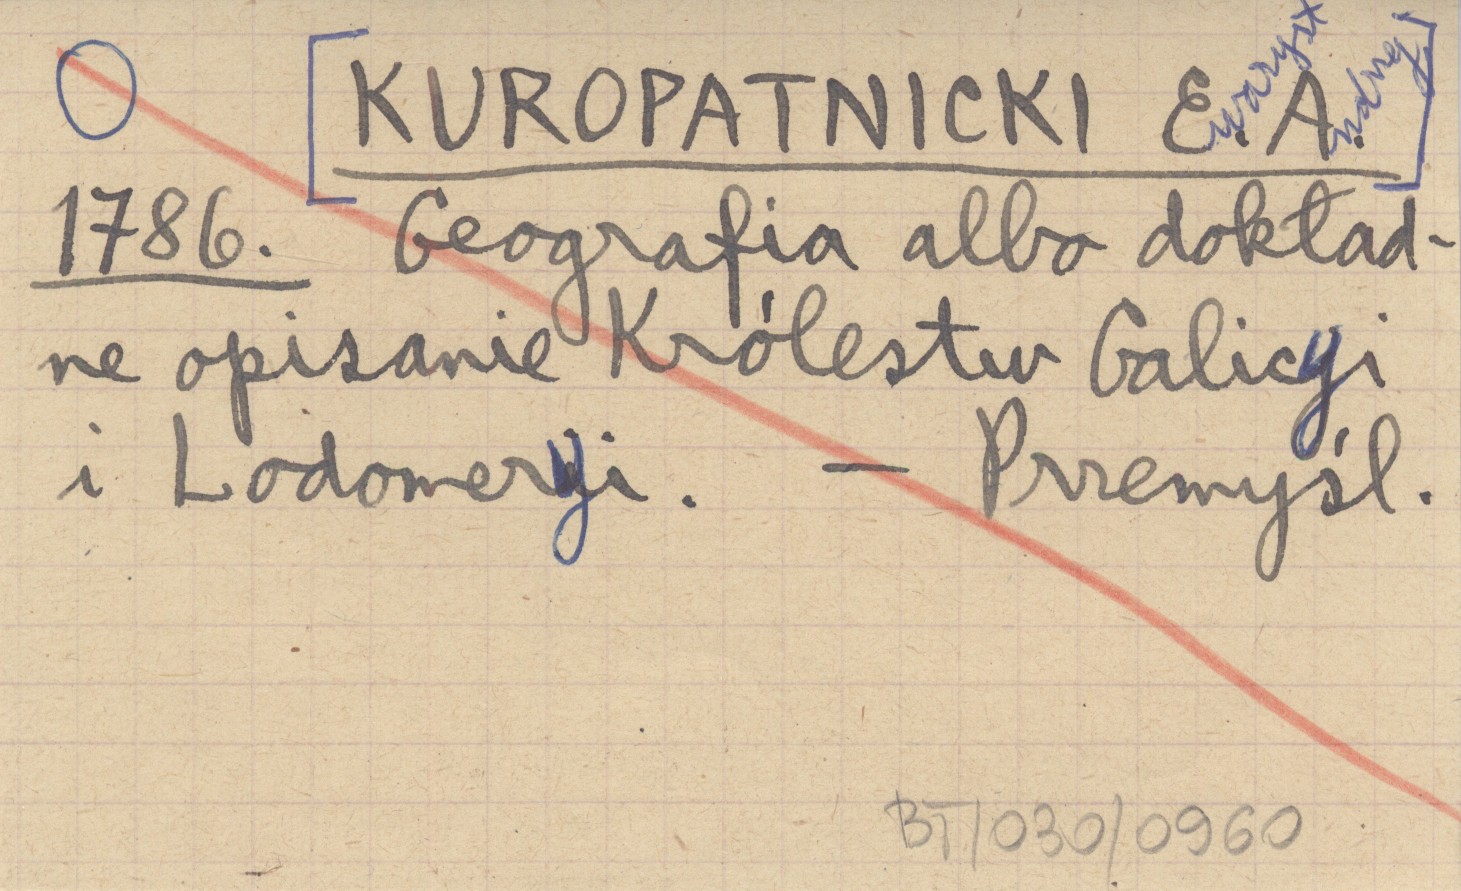 [KUROPATNICKI E.waryst A.ndrzej]
1786. Geografia albo dokład-
ne opisanie Królestw Galicyi
i Lodomeryi. — Przemyśl.
BT/030/0960